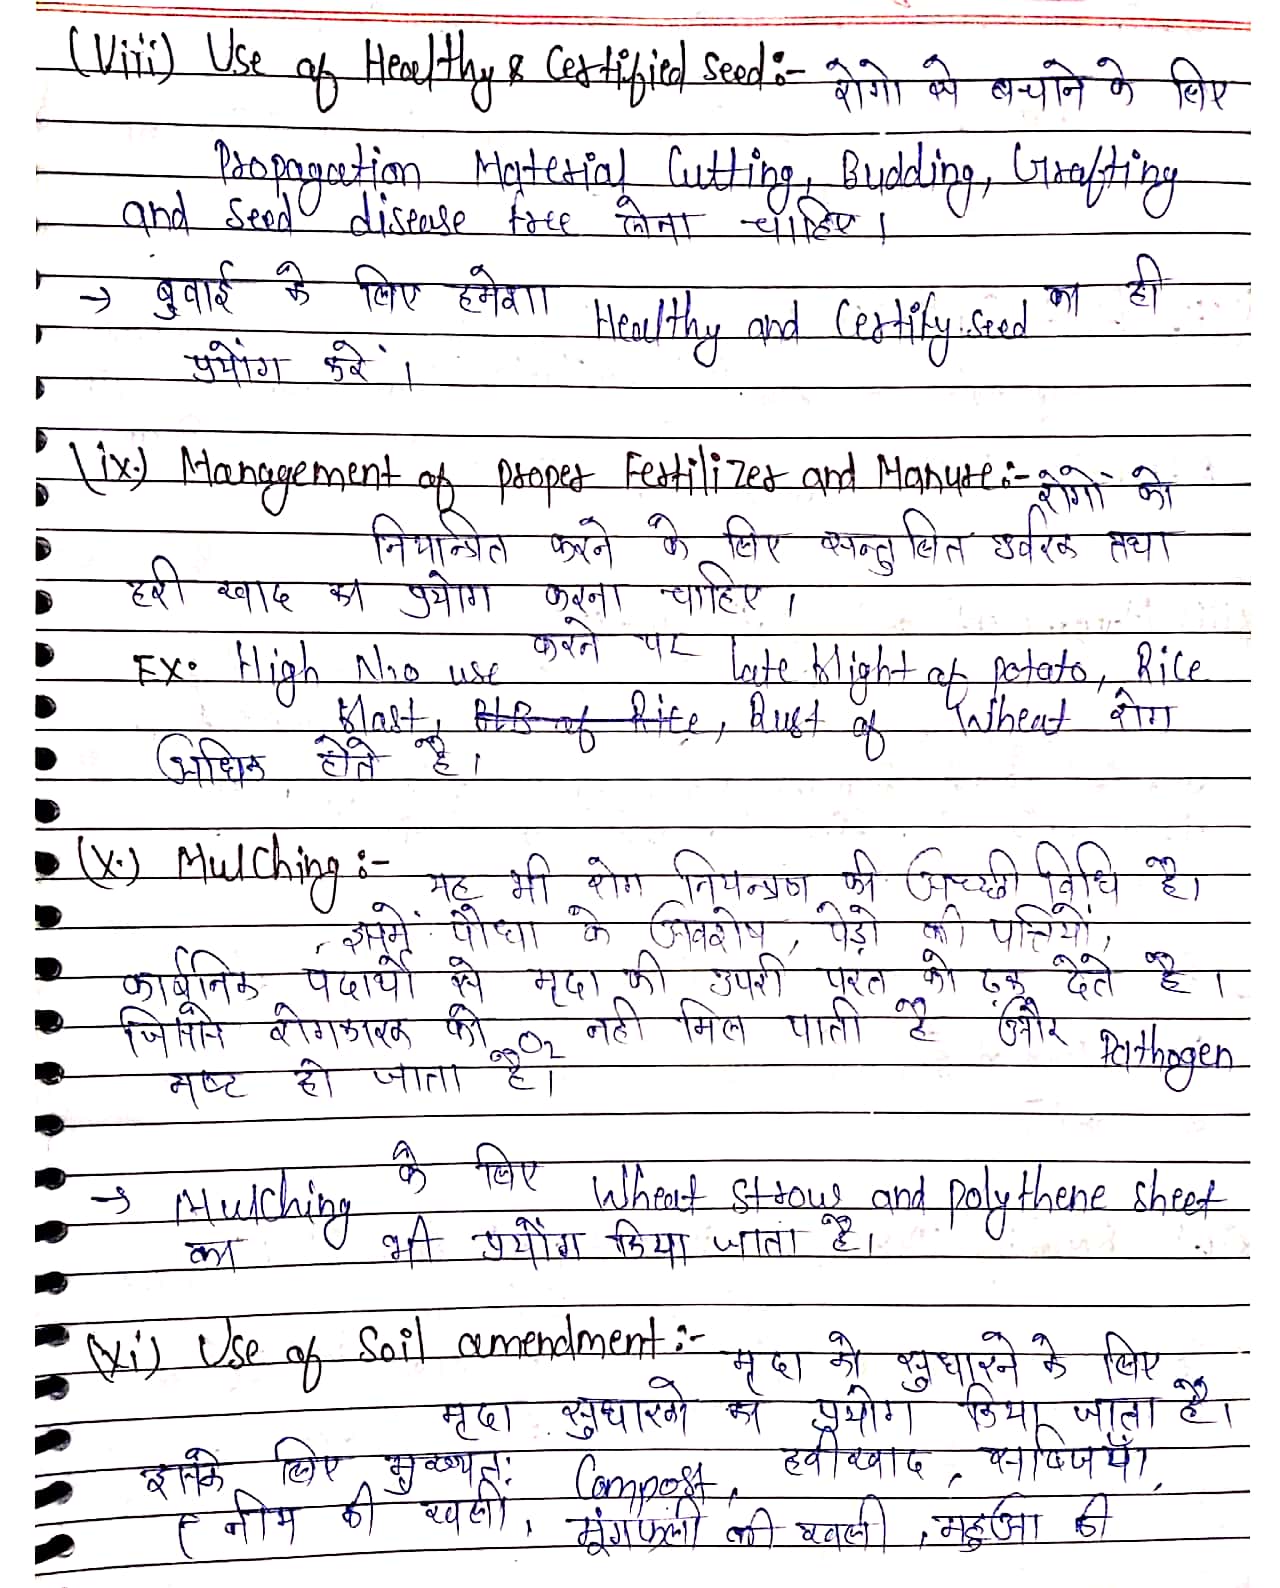 (viii) Use of Healthy & Certified seed:- रोगो से बचाने के लिए
Propagation Material Cutting, Budding, Grafting
and seed disease free लेना चाहिए।
→ बुवाई के लिए हमेशा Healthy and Certify seed का ही
प्रयोग करें।
(ix.) Management of proper Fertilizer and Manure:- रोगों को
नियन्त्रित करने के लिए सन्तुलित उर्वरक तथा
हरी खाद का प्रयोग करना चाहिए।
Ex. High use करने पर late blight of potato, Rice
Blast, BLB of Rice, Rust of Wheat रोग
अधिक होते है।
(x.) Mulching:- यह भी रोग नियन्त्रण की अच्छी विधि है।
इसमें पौधा के अवशेष, पेड़ो की पत्तियों,
कार्बनिक पदार्थो से मृदा की उपरी परत को ढ़क देते है।
जिससे रोगकारक को O2 नही मिल पाती है और Pathogen
नष्ट हो जाता है।
→ Mulching के लिए Wheat straw and polythene sheet
का भी प्रयोग किया जाता है।
(xi) Use of Soil amendment:- मृदा को सुधारने के लिए
मृदा सुधारको का प्रयोग किया जाता है।
इसके लिए मुख्यतः Compost, हरीखाद, सब्जियाँ,
नीम की खली, मूंगफली की खली, महुआ की